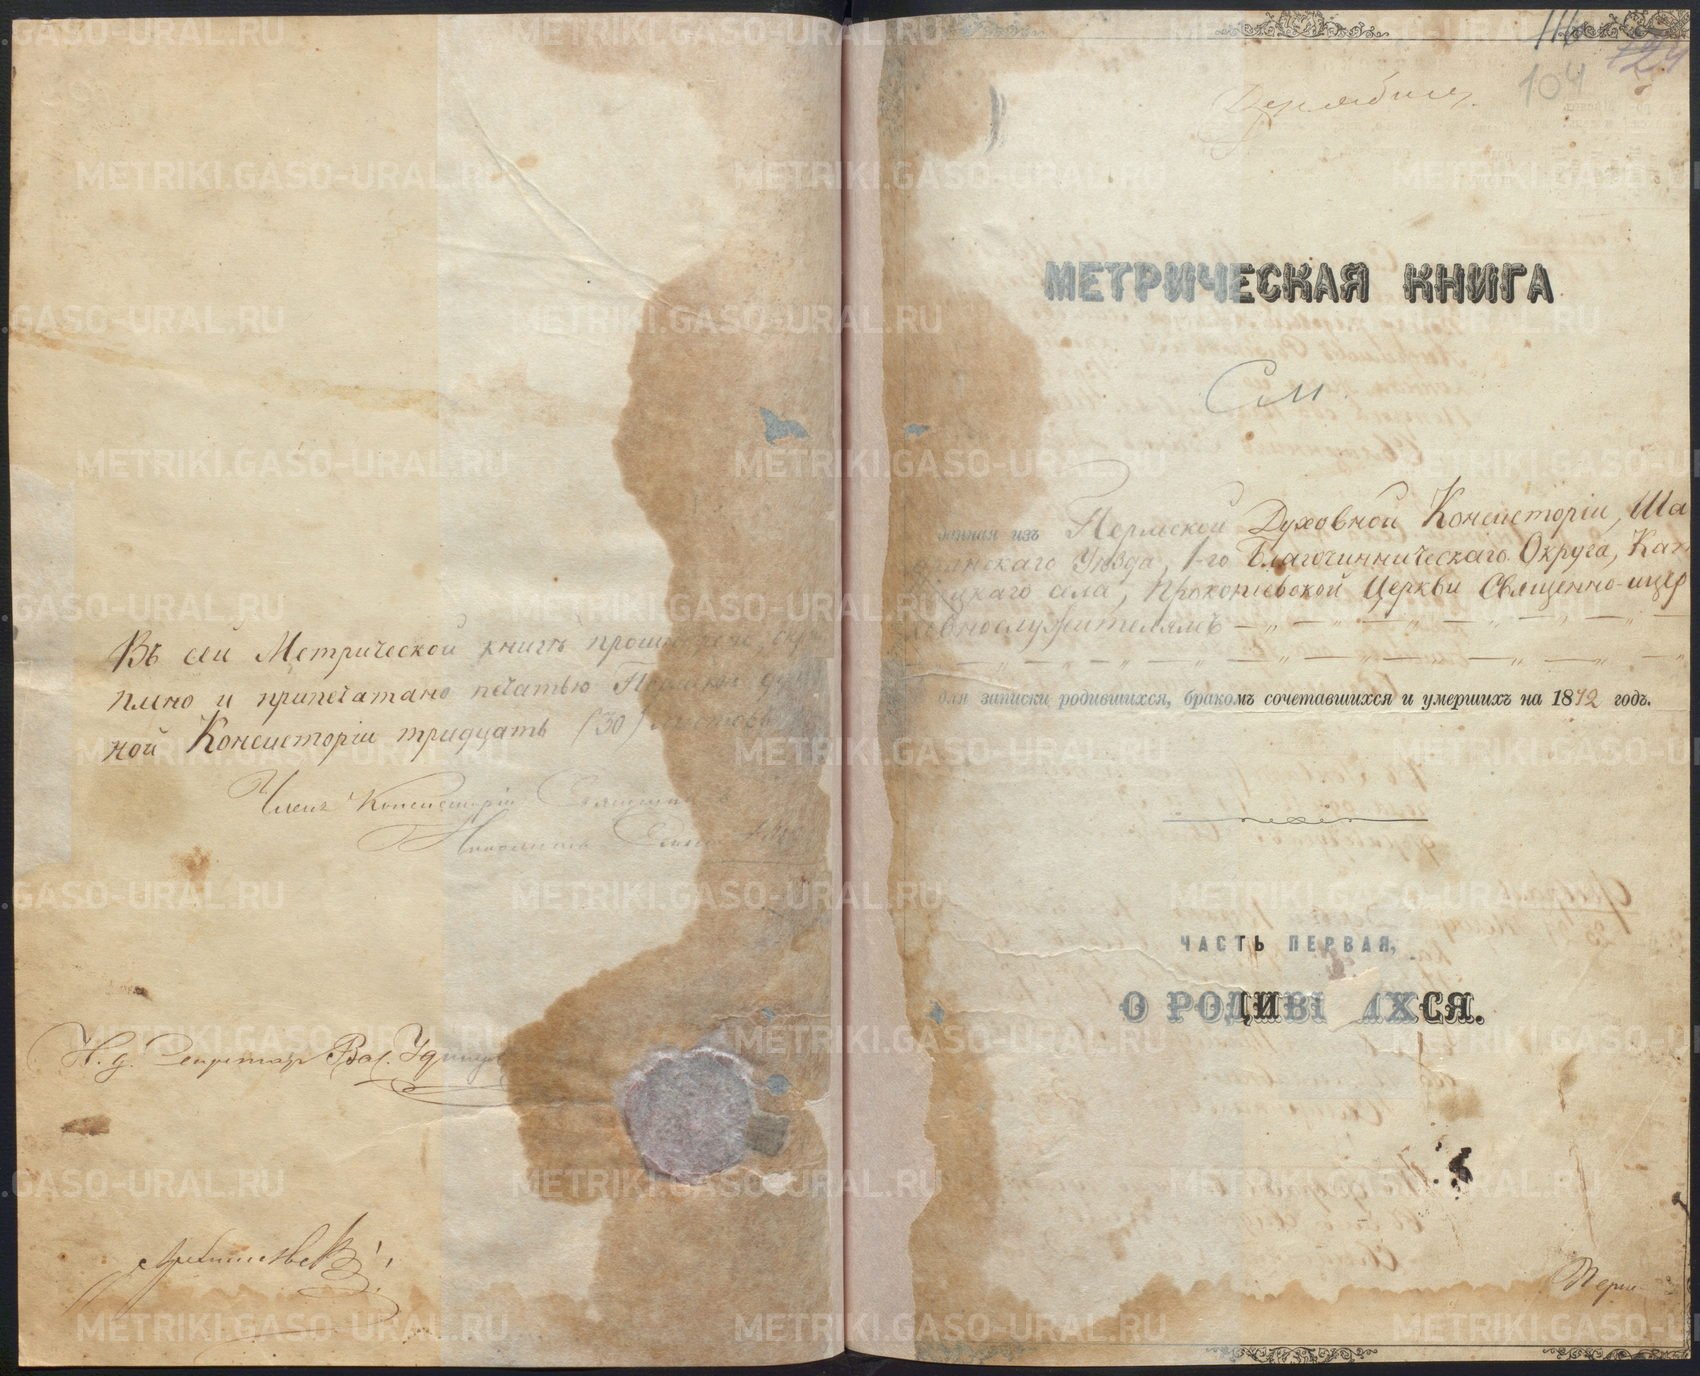 Въ сей Метрической книгѣ прошнуровано, скрѣ
плено и припечатано печатью Пермской духов
ной Консисторіи тридцать (30) листовъ
Членъ Консисторіи Священникъ
И. д. Секретар Вас. Удинцев
116
124
104
МЕТРИЧЕСКАЯ КНИГА
См.
данная изъ Пермской Духовной Консисторіи, Ша
дринскаго Уѣзда, 1-го Благочинническаго Округа, Кат
цкаго села, Прокопьевской Церкви Священно-цер
ковнослужителямъ
для записки родившихся, бракомъ сочетавшихся и умершихъ на 1892 годъ.
ЧАСТЬ ПЕРВАЯ,
О РОДИВШ АХСЯ.
METRIKI.GASO-URAL.RU